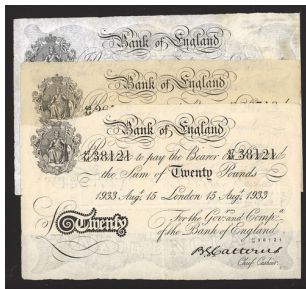 Bank of England
Bank of England
Bank of England
38121 to pay the Bearer 38121
the Sum of Twenty Pounds
1933 Augt 15 London 15 Augt 1933
Twenty
For the Govr and Compa
of the Bank of England.
38121
B.G. Catterns
Chief Cashier.